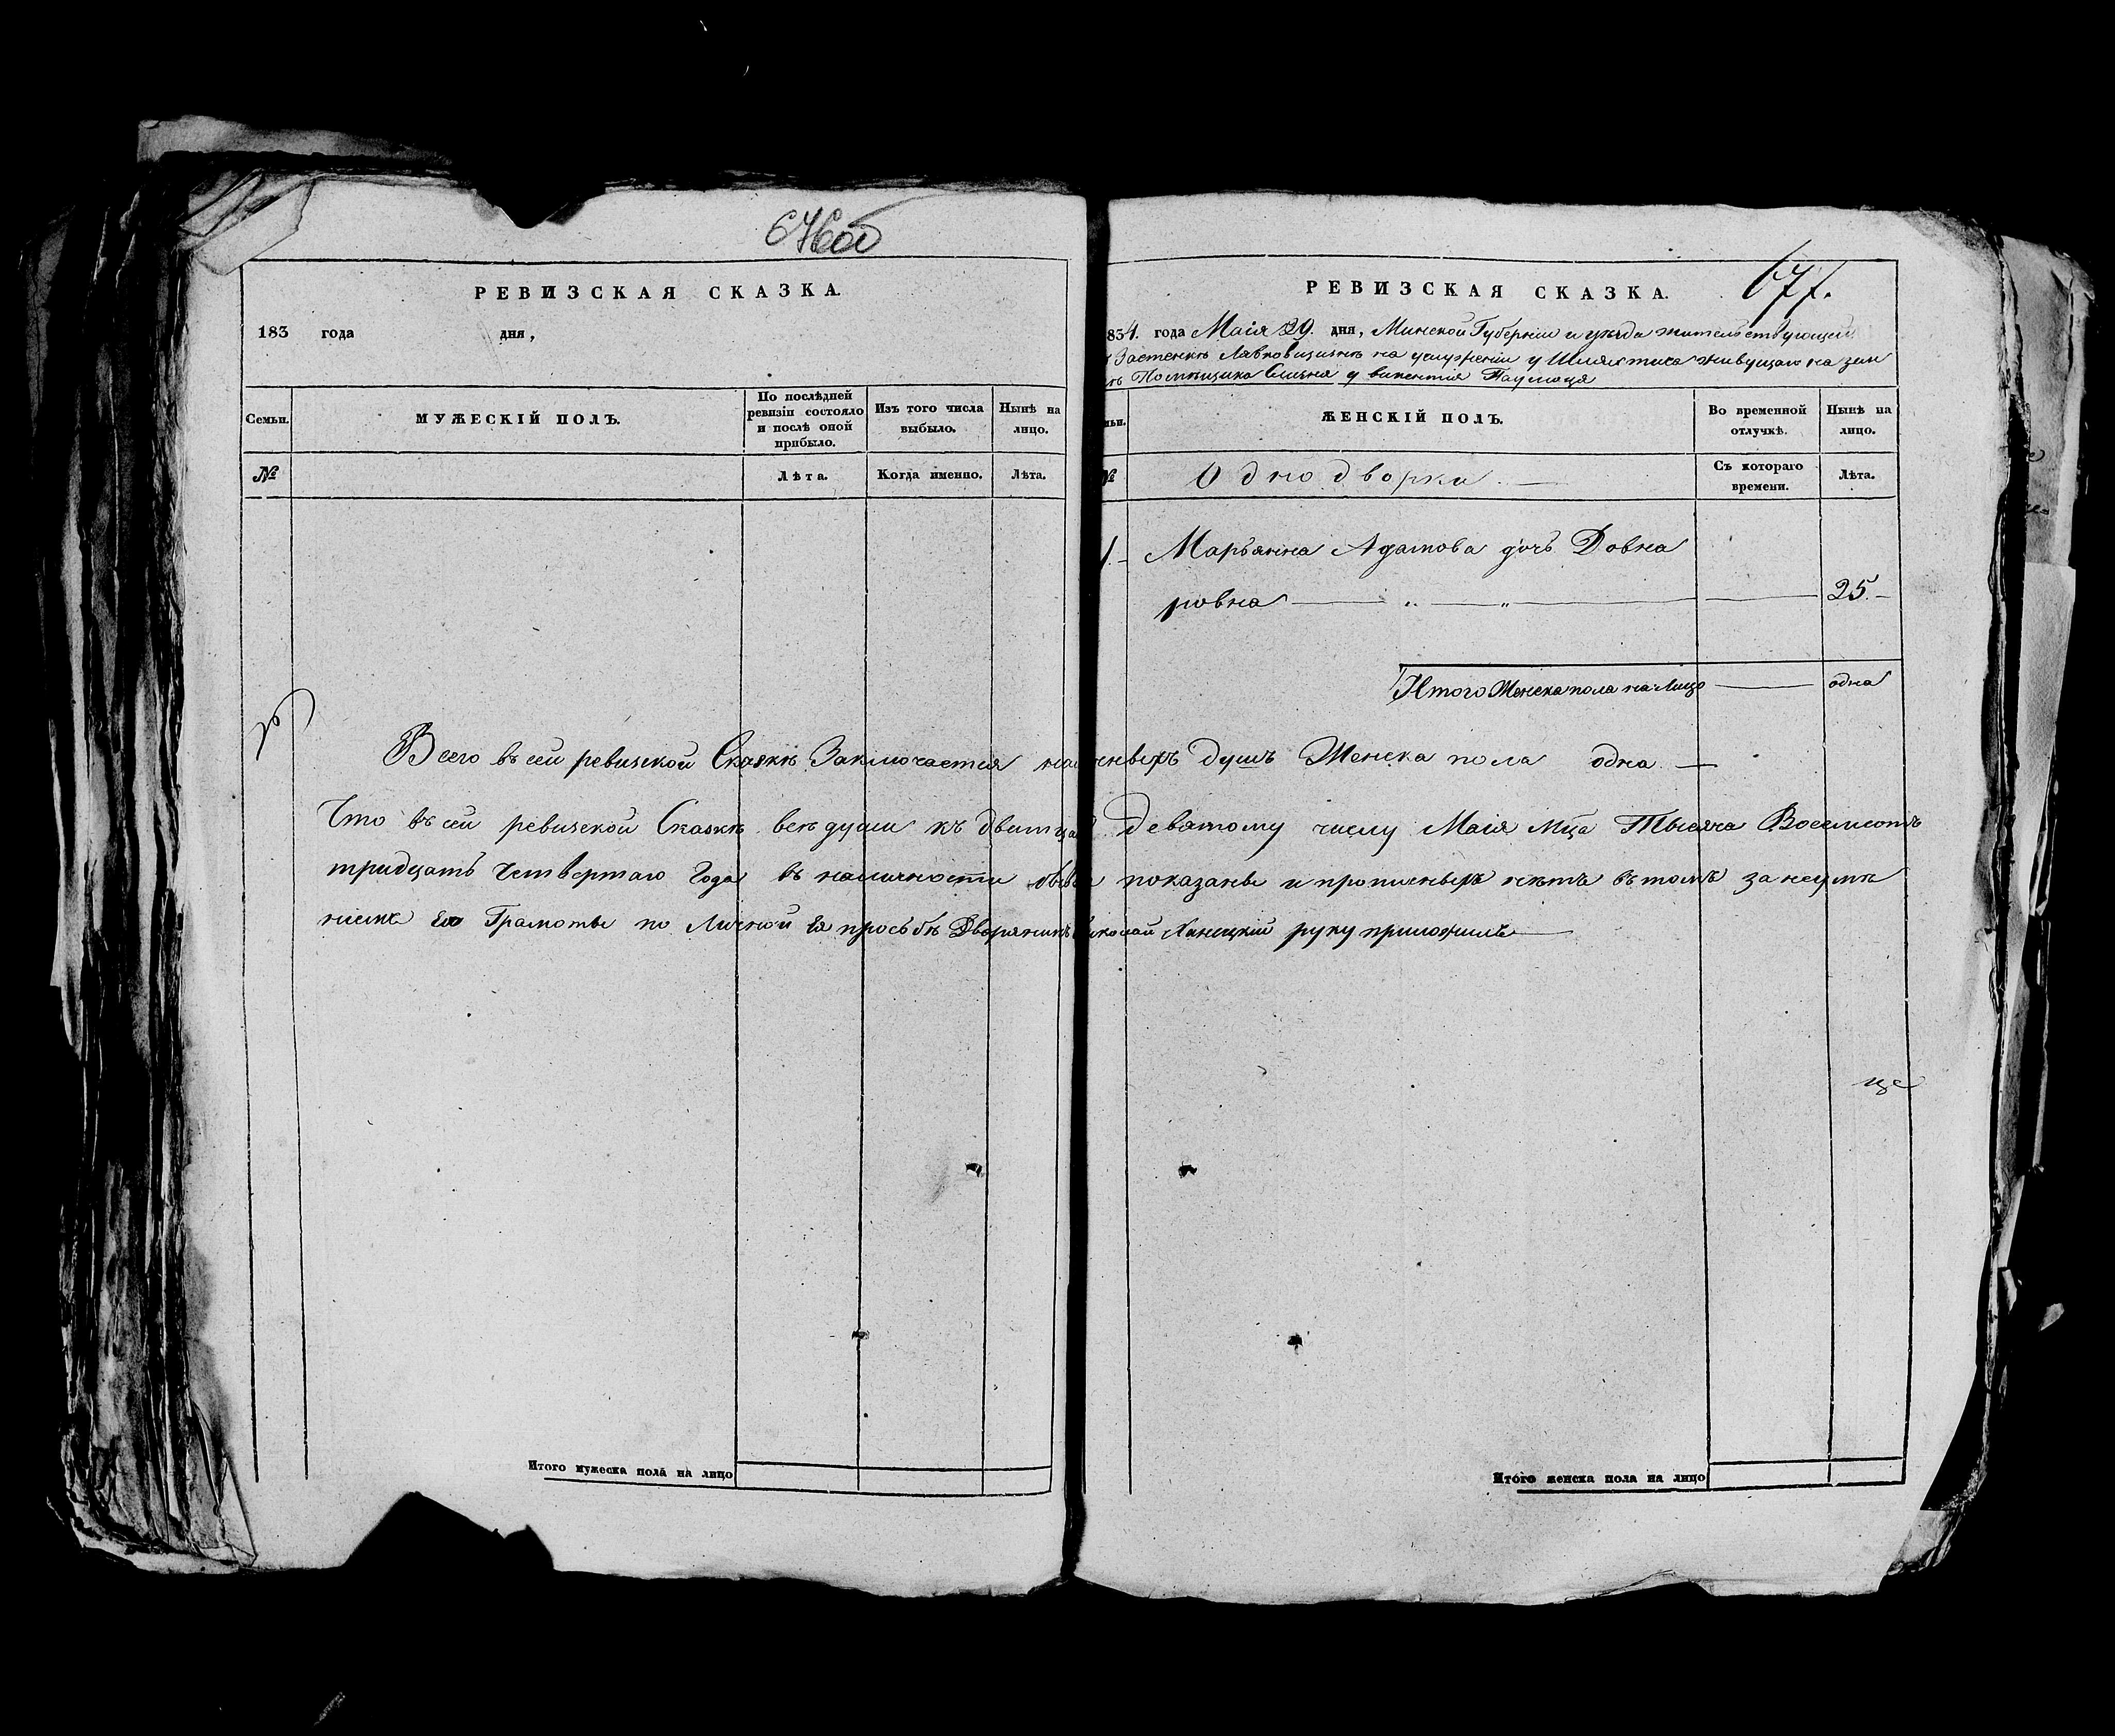 676об
РЕВИЗСКАЯ СКАЗКА.
183 года дня,
Семьи.
МУЖЕСКІЙ ПОЛЪ.
По послѣдней ревизіи состояло и послѣ оной прибыло.
Изъ того числа выбыло.
Нынѣ на лицо.
№
Лѣта.
Когда именно.
Лѣта.
Итого мужеска пола на лицо
677.
РЕВИЗСКАЯ СКАЗКА.
834. года Маія 29. дня, Минской Губерніи и уѣзда жительствующей
Застенкѣ Лявковщизнѣ на услуженіи у Шляхтича живущаго на зем
лѣ Помѣщика у викентія
ЖЕНСКІЙ ПОЛЪ.
Во временной отлучкѣ.
Нынѣ на лицо.
№
Однодворки.
Съ котораго времени.
Лѣта.
1. Марьянна Адамова дочь Довна
ровна 25
Итого Женска пола на Лицо одна
Всего въ сей ревизской Сказкѣ Заключается душъ Женска пола одна
Что въ сей ревизской Сказкѣ всѣ души къ дватцать девятому числу Маія Мца Тысяча Восемсотъ
тридцать четвертаго Года въ наличности показаны и прописныхъ нѣтъ въ томъ за неумѣ
ніемъ Ею Грамоты по Личной Ея просьбѣ Дворянинъ руку приложилъ
Итого женска пола на лицо